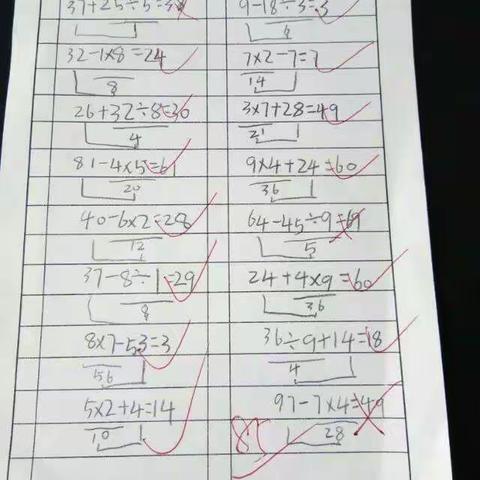 37+25÷5=3 9-18÷3=3
6
32-1×8=24 7×2-7=7
8 14
26+32÷8=30 3×7+28=49
4 21
81-4×5=61 9×4+24=60
20 36
40-6×2=28 64-45÷9=69
12 5
37-8÷1=29 24+4×9=60
8 36
8×7-53=3 36÷9+14=18
56 4
5×2+4=14 97-7×4=49
10 28